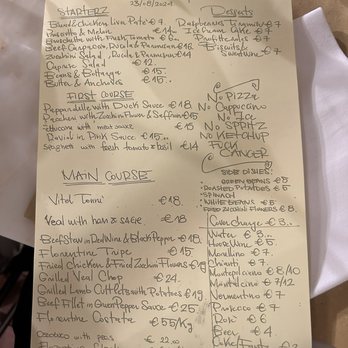 STARTERZ
23/08/2024
Blend chicken Liver Paté €7
Prosciutto e Melone €14
Bruschetta with Fresh Tomato €6
Beef Carpaccio, Rucola & Parmesan €16
Zucchini Salad, Rucola & Parmesan €14
Caprese Salad €12.
Beans & Bottarga €15.
Butter & Anchovies €15.
FIRST COURSE
Pappardelle with Duck Sauce €18
Paccheri with Zucchini Flower & Saffron €15
Fettuccine with meat sauce €18
Ravioli in Pink Sauce €15.
Spaghetti with fresh tomato & basil €14
MAIN COURSE
Vitel Tonné €18
Veal with ham & sage €18
Beef Stew in Red Wine & Black Pepper €18.
Florentine Tripe €15
Fried Chicken & Fried Zucchini Flowers €19
Grilled Veal Chop €24.
Grilled Lamb Cuttlets with Potatoes €19
Beef Fillet in Green Pepper Sauce €25
Florentine Costata €55/Kg
with peas €22.00
Desserts
Raspberries Tiramisu €7
Ice Cream Cake €7
Profitteroles €7
Biscuits &
Sweet Wine €7
No PIZZA
No Cappuccino
No Ice
No SPRITZ
No KETCHUP
FUCK
CANCER
SIDE DISHES:
GREEN BEANS €5
• ROASTED POTATOES €5
• SPINACH
• WHITE BEANS €5
FRIED ZUCCHINI FLOWERS €8.
Cover charge €3..
Water €3..
House Wine €5
Morellino €7.
Chianti €7.
Montepulciano €8/40
Montalcino €7/12
Vermentino €7
Prosecco €7
Beer €4.